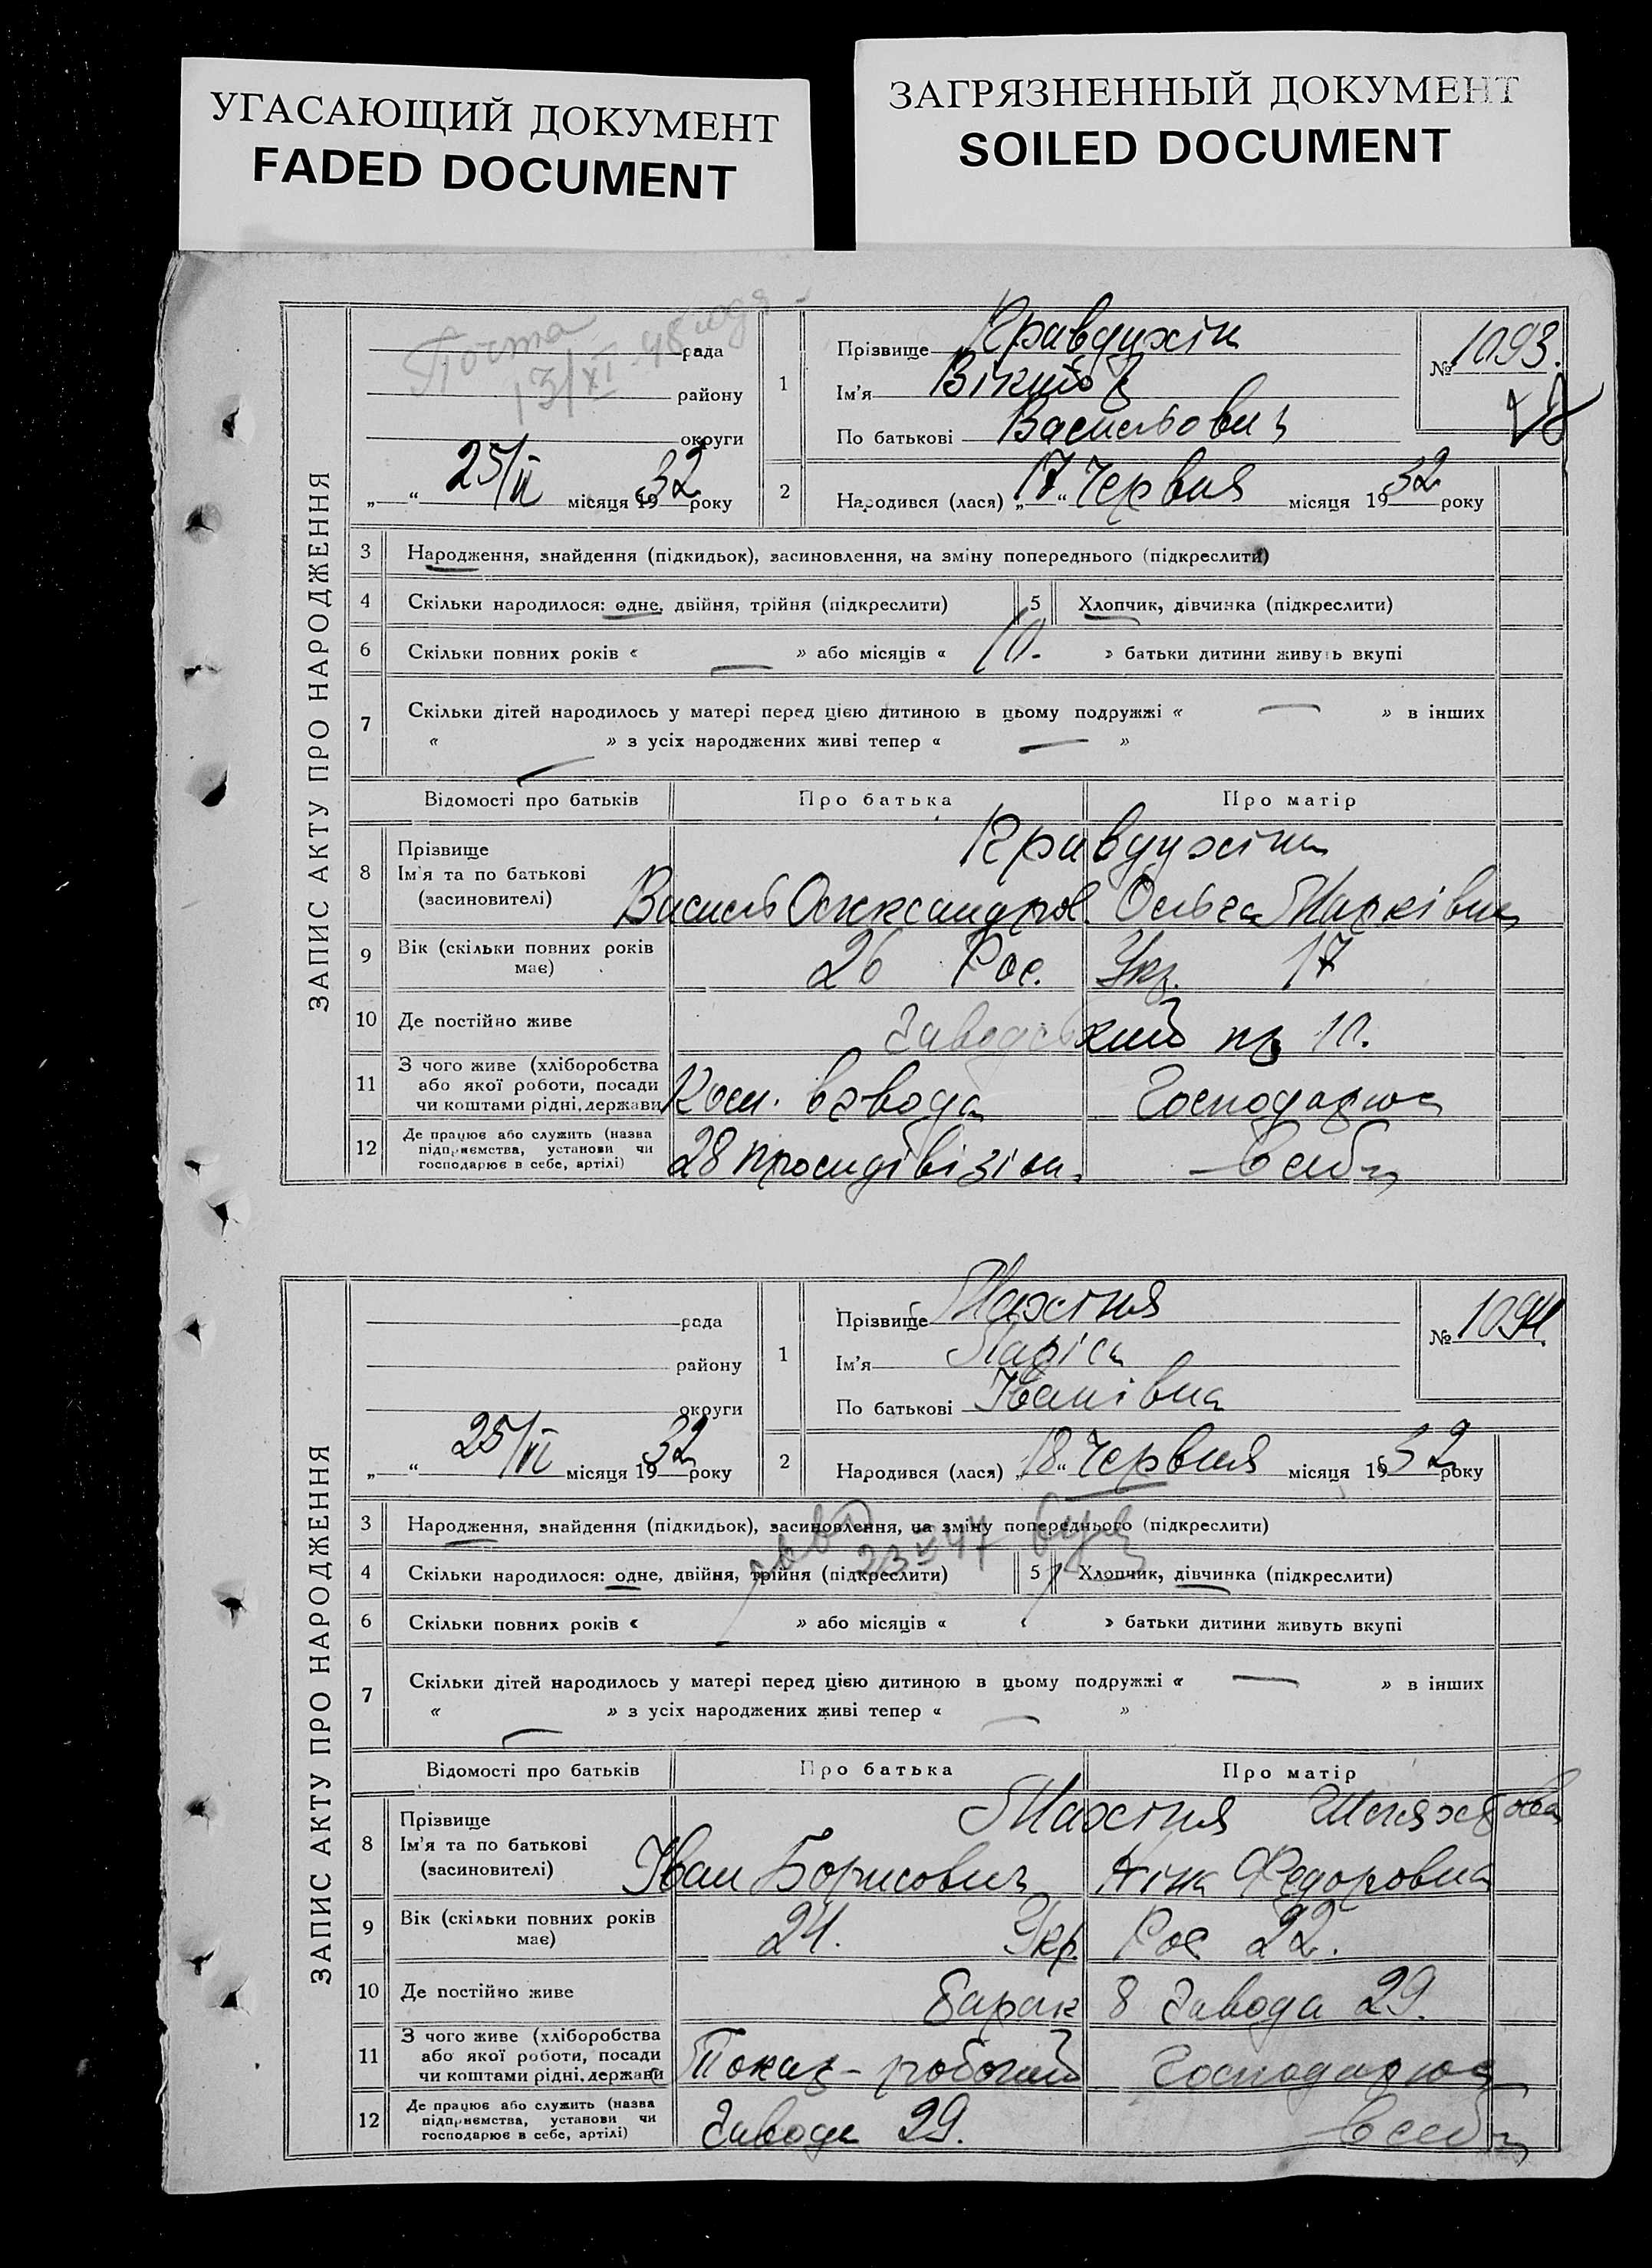 УГАСАЮЩИЙ ДОКУМЕНТ
FADED DOCUMENT
ЗАГРЯЗНЕННЫЙ ДОКУМЕНТ
SOILED DOCUMENT
ЗАПИС АКТУ ПРО НАРОДЖЕННЯ
Почта
13/XI-48
рада
району
округи
„ “ 25/VI місяця 1932 року
1
Прізвище Кравдухін
Ім'я Віктор
По батькові Васильович
№ 1093.
2
Народився (лася) „17“ Червня місяця 1932 року
3 Народження, знайдення (підкидьок), засиновлення, на зміну попереднього (підкреслити)
4 Скільки народилося: одне, двійня, трійня (підкреслити) 5 Хлопчик, дівчинка (підкреслити)
6 Скільки повних років « — » або місяців « 10. » батьки дитини живуть вкупі
7 Скільки дітей народилось у матері перед цією дитиною в цьому подружжі « — » в інших
« — » з усіх народжених живі тепер « — »
Відомості про батьків Про батька Про матір
8 Прізвище
Ім'я та по батькові
(засновителі)
Кравдухіни
Василь Олександров. Ольга Марківна
9 Вік (скільки повних років
має)
26 Рос. Укр. 17
10 Де постійно живе Заводський пр 10.
11 З чого живе (хліборобства
або якої роботи, посади
чи коштами рідні, держави
Ком. взвода Господарює
12 Де працює або служить (назва
підприємства, установи чи
господарює в себе, артілі)
28 в себе
ЗАПИС АКТУ ПРО НАРОДЖЕННЯ
рада
району
округи
„ “ 25/VI місяця 1932 року
1
Прізвище Махіня
Ім'я Лариса
По батькові Іванівна
№ 1094.
2
Народився (лася) „18“ Червня місяця 1932 року
3 Народження, знайдення (підкидьок), засиновлення, на зміну попереднього (підкреслити)
4 Скільки народилося: одне, двійня, трійня (підкреслити) 5 Хлопчик, дівчинка (підкреслити)
6 Скільки повних років « » або місяців « » батьки дитини живуть вкупі
7 Скільки дітей народилось у матері перед цією дитиною в цьому подружжі « — » в інших
« — » з усіх народжених живі тепер « — »
Відомості про батьків Про батька Про матір
8 Прізвище
Ім'я та по батькові
(засиновителі)
Махіня
Іван Борисович Ніна Федоровна
9 Вік (скільки повних років
має)
24. Укр. Рос 22.
10 Де постійно живе Барак 8 Завода 29.
11 З чого живе (хліборобства
або якої роботи, посади
чи коштами рідні, держави
Токар - робочий Господарює
12 Де працює або служить (назва
підприємства, установи чи
господарює в себе, артілі)
Завода 29. в себе